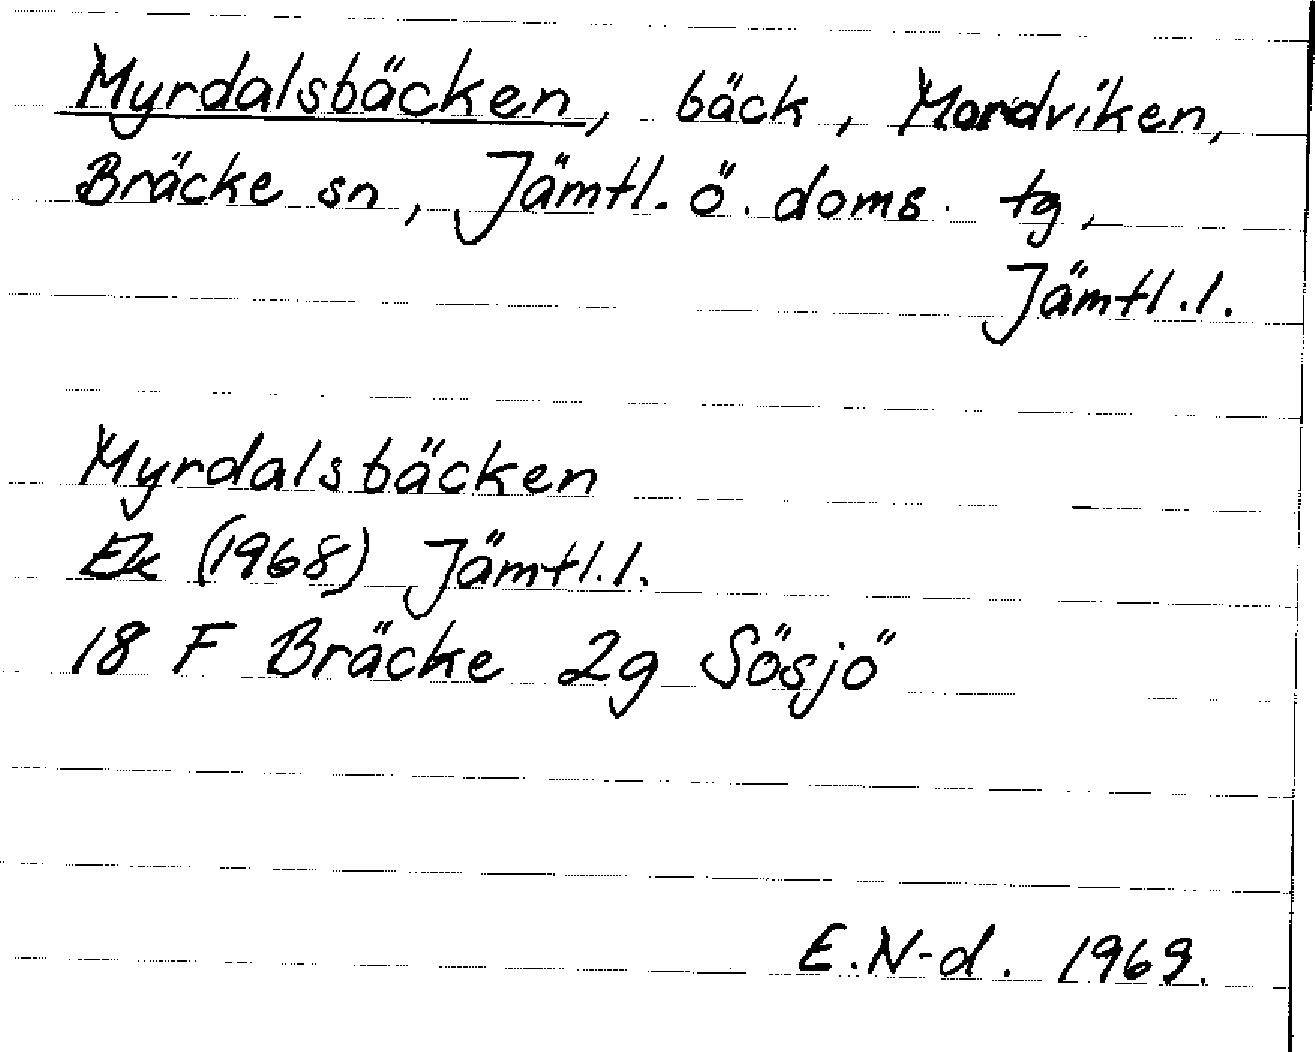 Myrdalsbäcken, bäck, Mordviken,
Bräcke sn, Jämtl. ö. doms. tg,
Jämtl.l.
Myrdalsbäcken
Ek (1968) Jämtl.l.
18 F Bräcke 2g Sösjö
E.N-d. 1969.